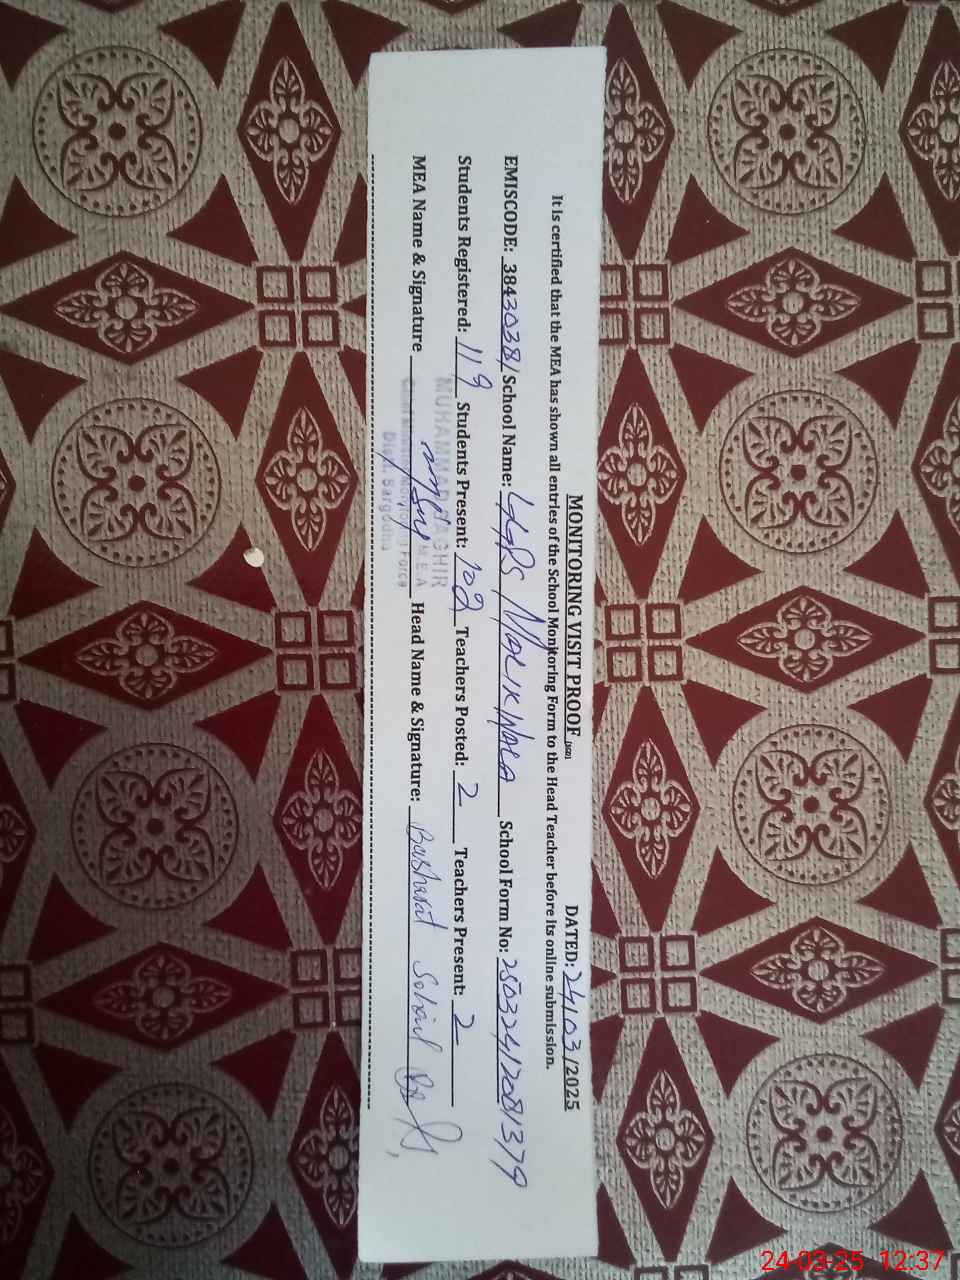 MONITORING VISIT PROOF DATED: 24/03/2025
It is certified that the MEA has shown all entries of the School Monitoring Form to the Head Teacher before its online submission.
EMISCODE: 38430381 School Name: GGPS MALIKWALA School Form No: 25032412081379
Students Registered: 119 Students Present: 102 Teachers Posted: 2 Teachers Present: 2
MEA Name & Signature Head Name & Signature: Basharat Sohail
MUHAMMAD M.E.A
Chief Minister Monitoring Force
Distt. Sargodha
24-03-25 12:37